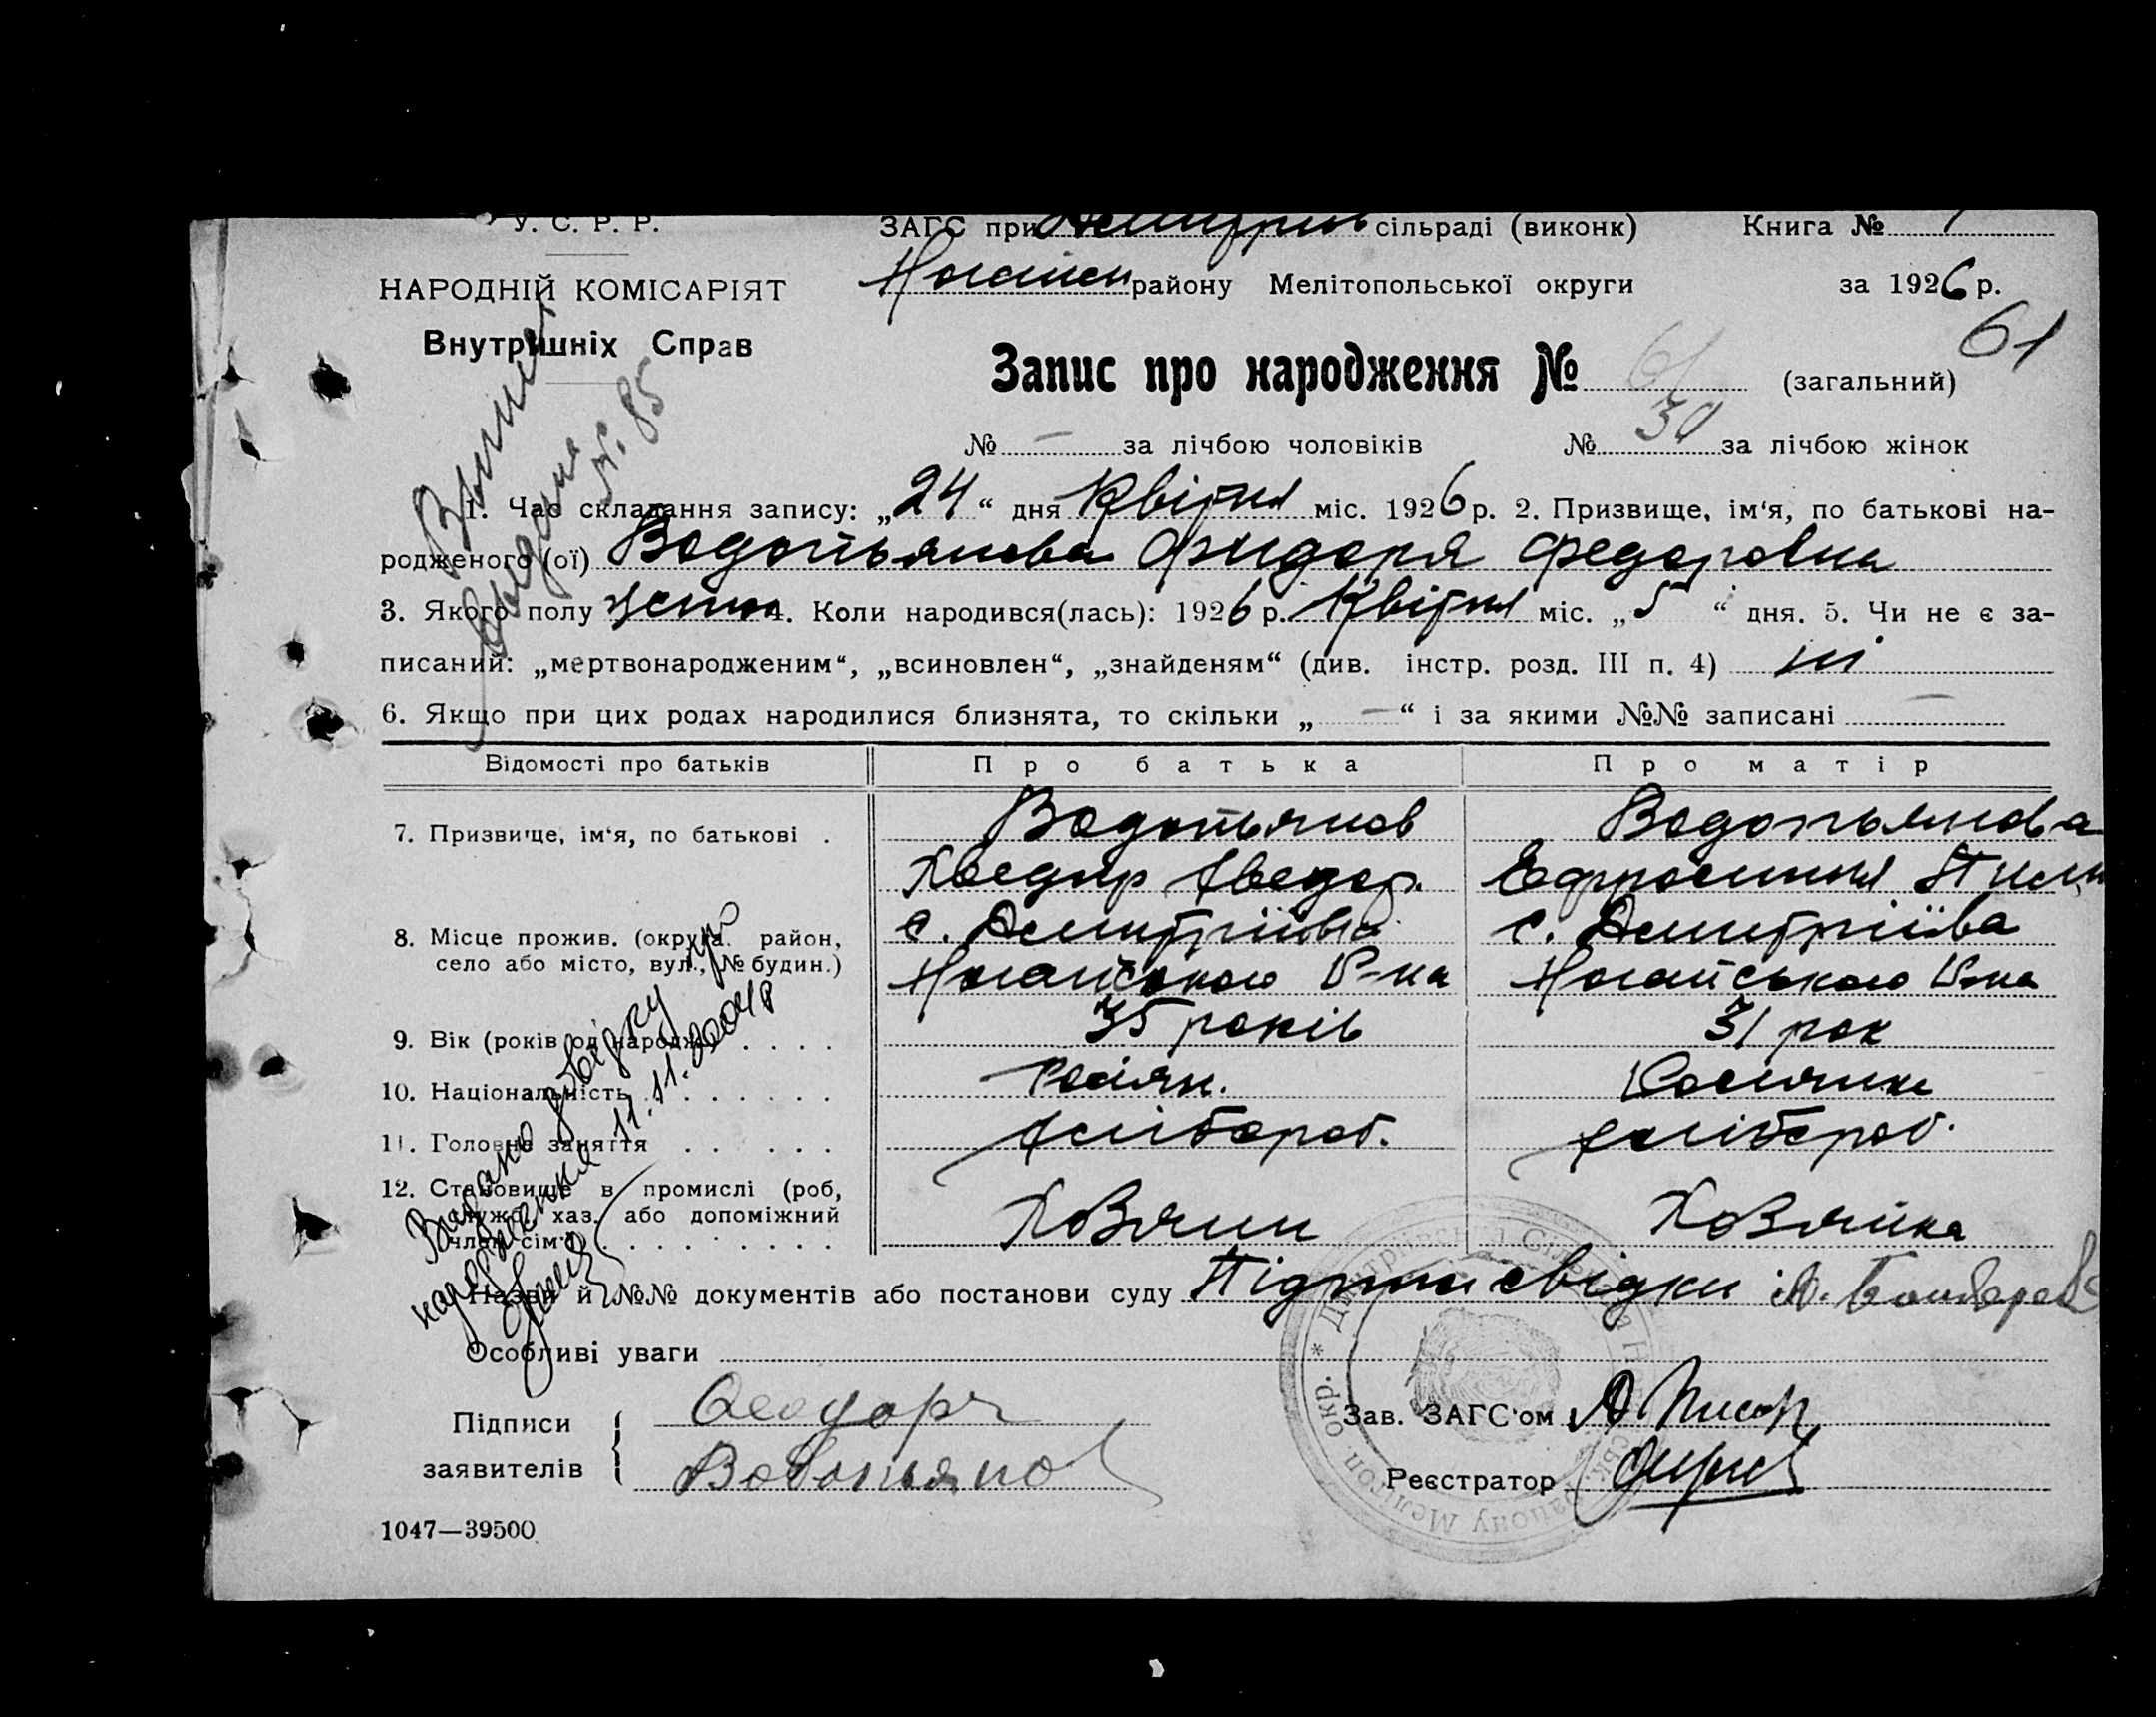 У. С. Р. Р.
НАРОДНІЙ КОМІСАРІЯТ
Внутрішніх Справ
ЗАГС при сільраді (виконк) Книга №
Ногайськ району Мелітопольської округи за 1926 р.
61
Запис про народження № 61 (загальний)
№ — за лічбою чоловіків № 30 за лічбою жінок
1. Час складання запису: „24“ дня Квітня міс. 1926 р. 2. Призвище, ім‘я, по батькові на-
родженого (ої) Водопьянова Фидоря Федоровна
3. Якого полу жіноч 4. Коли народився(лась): 1926 р. Квітня міс. „5“ дня. 5. Чи не є за-
писаний: „мертвонародженим“, „всиновлен“, „знайденям“ (див. інстр. розд. III п. 4) ні
6. Якщо при цих родах народилися близнята, то скільки „—“ і за якими №№ записані —
№ 85
Відомості про батьків Про батька Про матір
7. Призвище, ім‘я, по батькові . Водопьянов Водопьянова
Хведир Ефросиния
8. Місце прожив. (округа. район, с. Дмитріївка с. Дмитріївка
село або місто, вул., № будин.) Ногайського Р-на Ногайського Р-на
9. Вік (років од народж) . . . . 35 років 31 рок
10. Національність . . . . . . . Росіян. Росиянка
11. Головне заняття . . . . . хлібороб. хлібороб.
12. Становище в промислі (роб,
служб. хаз. або допоміжний
член сім‘ї) . . . . . . . . . Хозяин Хозяйка
Видано довідку про
народження 11.11.2004р
Назви й №№ документів або постанови суду свідки
Особливі уваги
Підписи
заявителів
Феодоръ
Водопьянов
Зав. ЗАГС‘ом
Реєстратор
1047—39500